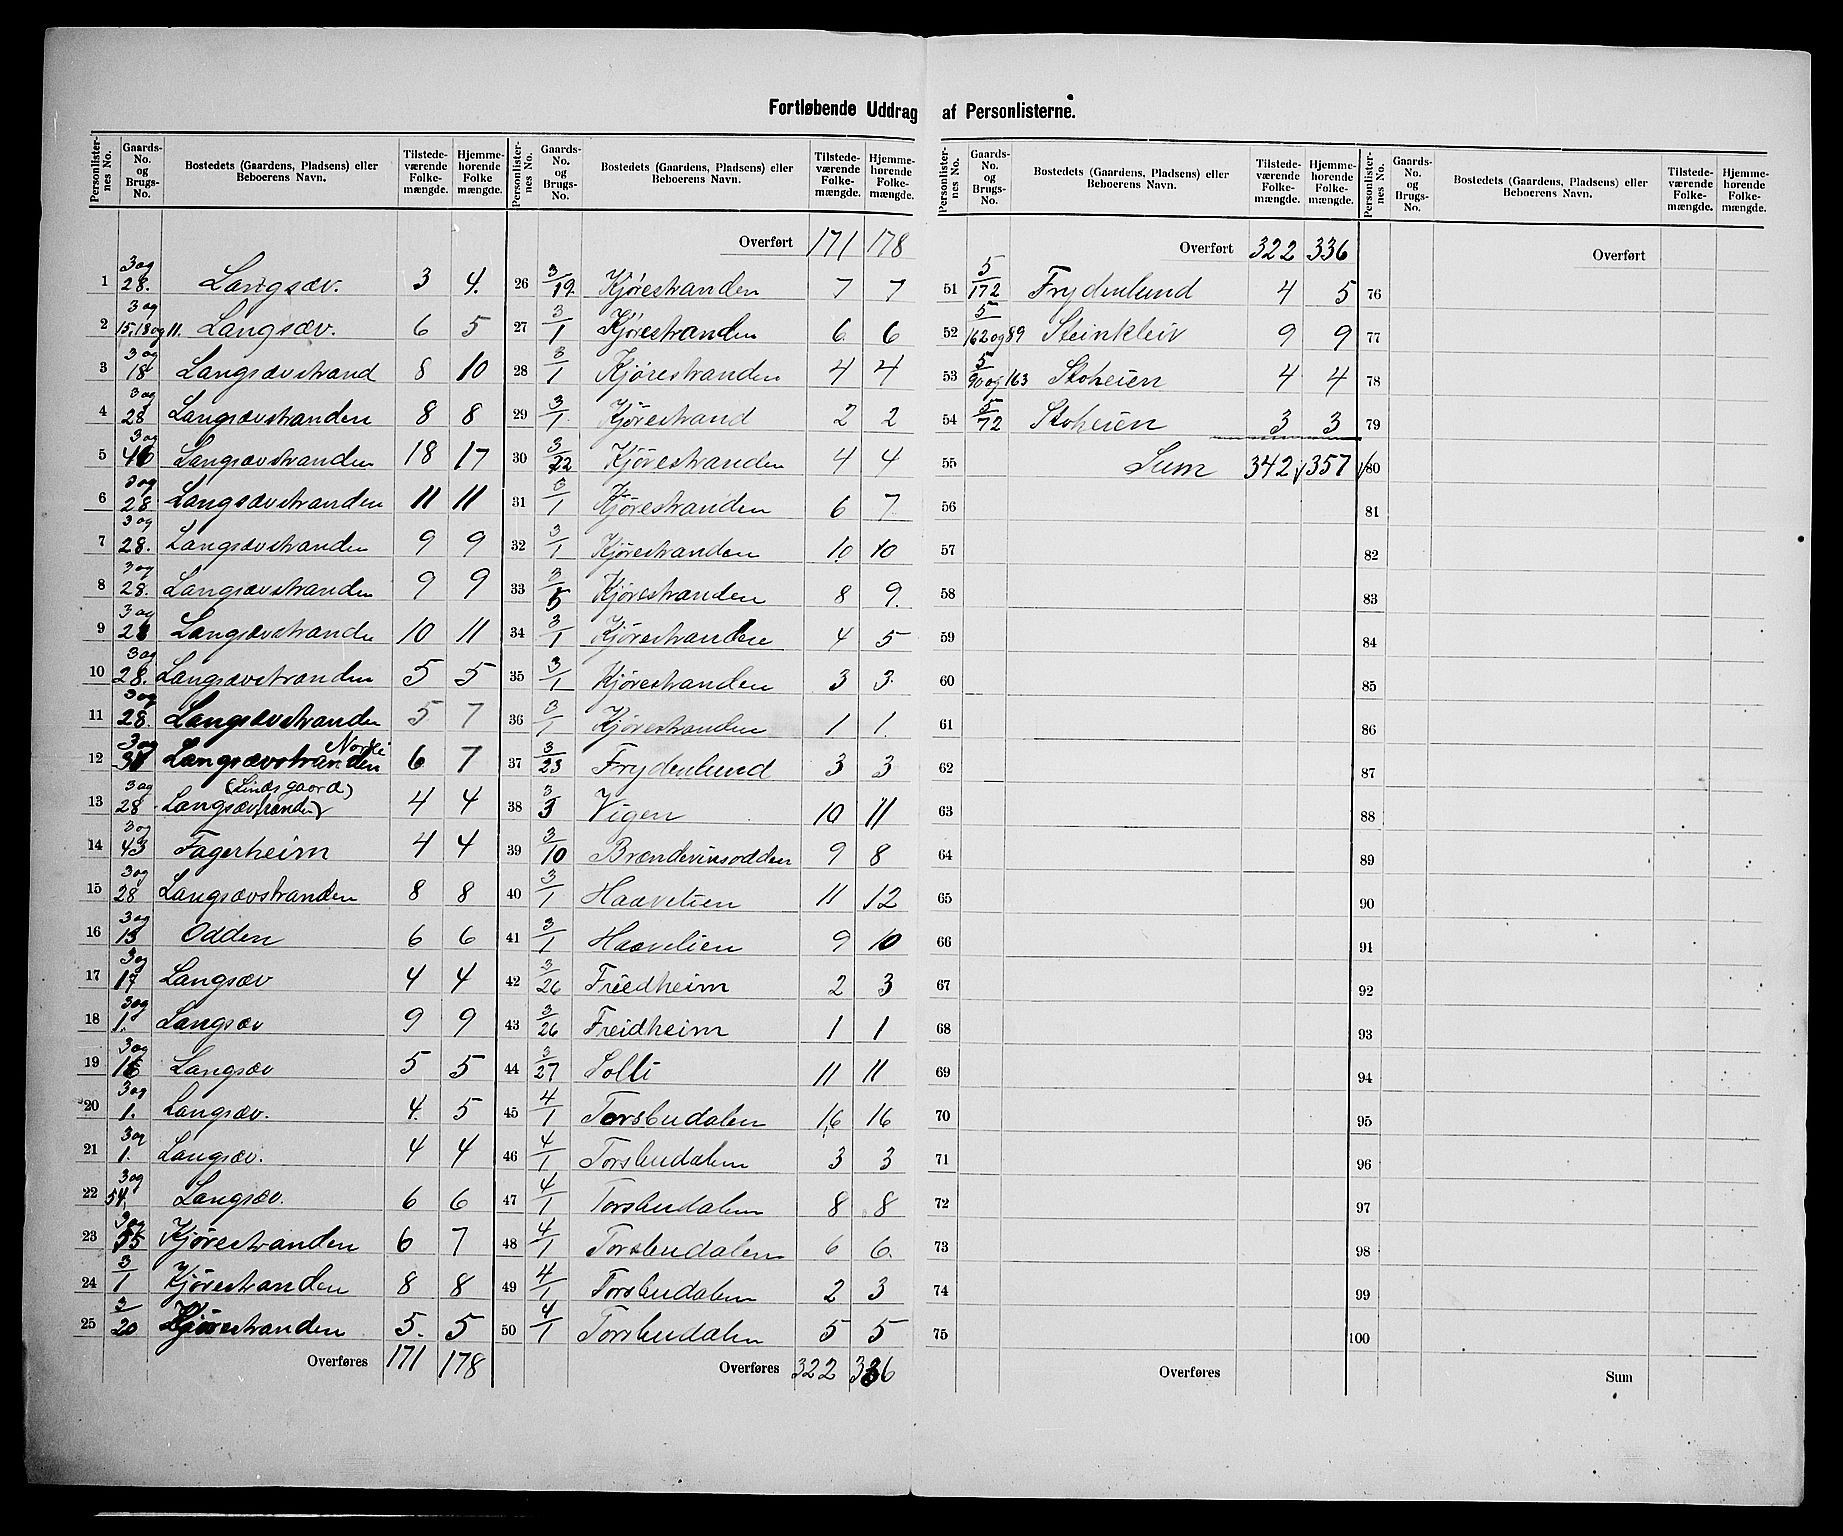 Fortløbende Uddrag af Personlisterne.
Personlister-nes No. | Gaards-No. og Brugs-No. | Bostedets (Gaardens, Pladsens) eller Beboerens Navn. | Tilstede-værende Folke-mængde. | Hjemme-hørende Folke mængde.
1 3 og 28. Langsæv. 3 4.
2 3 og 15, 18 og 11. Langsæv. 6 5
3 3 og 18 Langsævstrand 8 10
4 3 og 28 Langsævstranden 8 8
5 3 og 46 Langsævstranden 18 17
6 3 og 28 Langsævstranden 11 11
7 3 og 28. Langsævstranden 9 9
8 3 og 28. Langsævstranden 9 9
9 3 og 28 Langsævstranden 10 11
10 3 og 28. Langsævstranden 5 5
11 3 og 28. Langsævstranden 5 7
12 3 og 31 Langsævstranden Nordre 6 7
13 3 og 28 Langsævstranden (Lindsgaard) 4 4
14 3 og 43 Fagerheim 4 4
15 3 og 28 Langsævstranden 8 8
16 3 og 13 Odden 6 6
17 3 og 17 Langsæv 4 4
18 3 og 1. Langsæv 9 9
19 3 og 16 Langsæv 5 5
20 3 og 1. Langsæv. 4. 5
21 3 og 1. Langsæv. 4 4
22 3 og 54, Langsæv. 6 6
23 3 og 55 Kjørestranden 6 7
24 3/1 Kjørestranden 8 8
25 3/20 Kjørestranden 5. 5
Overføres 171 178
Personlister-nes No. | Gaards-No. og Brugs-No. | Bostedets (Gaardens, Pladsens) eller Beboerens Navn. | Tilstede-værende Folke-mængde. | Hjemme-hørende Folke-mængde.
Overført 171 178
26 3/19. Kjørestranden 7 7
27 3/1 Kjørestranden 6. 6
28 3/1 Kjørestranden 4 4
29 3/1. Kjørestrand 2 2
30 3/22 Kjørestranden 4 4
31 3/1 Kjørestranden 6 7.
32 3/1 Kjørestranden 10. 10
33 3/5 Kjørestranden 8 9.
34 3/1 Kjørestranden 4 5
35 3/1 Kjørestranden 3 3.
36 3/1 Kjørestranden 1 1.
37 3/23 Frydenlund 3 3
38 3/3 Vigen 10 11
39 3/10 Brændevinsodden 9 8
40 3/1 Haavelien 11 12
41 3/1 Haavelien 9 10
42 3/26 Friedheim 2 3
43 3/26 Freidheim 1 1
44 3/27 Solli 11 11
45 4/1 Torsbudalen 16 16
46 4/1 Torsbudalen 3 3
47 4/1 Torsbudalen 8 8
48 4/1 Torsbudalen 6 6.
49 4/1 Torsbudalen 2 3
50 4/1 Torsbudalen 5 5
Overføres 322 336
Personlister-nes No. | Gaards-No. og Brugs-No. | Bostedets (Gaardens, Pladsens) eller Beboerens Navn. | Tilstede-værende Folke-mængde. | Hjemme-hørende Folke-mængde.
Overført 322 336
51 5/172 Frydenlund 4 5
52 5/162 og 89 Steinkleiv 9 9
53 5/90 og 163 Stoheien 4 4
54 5/72 Stoheien 3 3
55 Sum 342 357
56
57
58
59
60
61
62
63
64
65
66
67
68
69
70
71
72
73
74
75
Overføres
Personlister-nes No. | Gaards-No. og Brugs-No. | Bostedets (Gaardens, Pladsens) eller Beboerens Navn. | Tilstede-værende Folke-mængde. | Hjemme-hørende Folke-mængde.
Overført
76
77
78
79
80
81
82
83
84
85
86
87
88
89
90
91
92
93
94
95
96
97
98
99
100
Sum